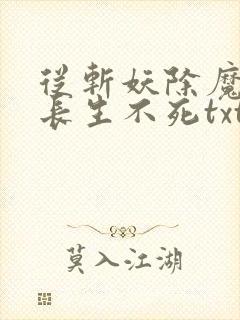 從斬妖除魔
長生不死txt
莫入江湖